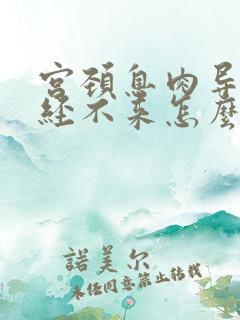 宫颈息肉导
经不来怎麽
諾美尔
未经同意禁止转载